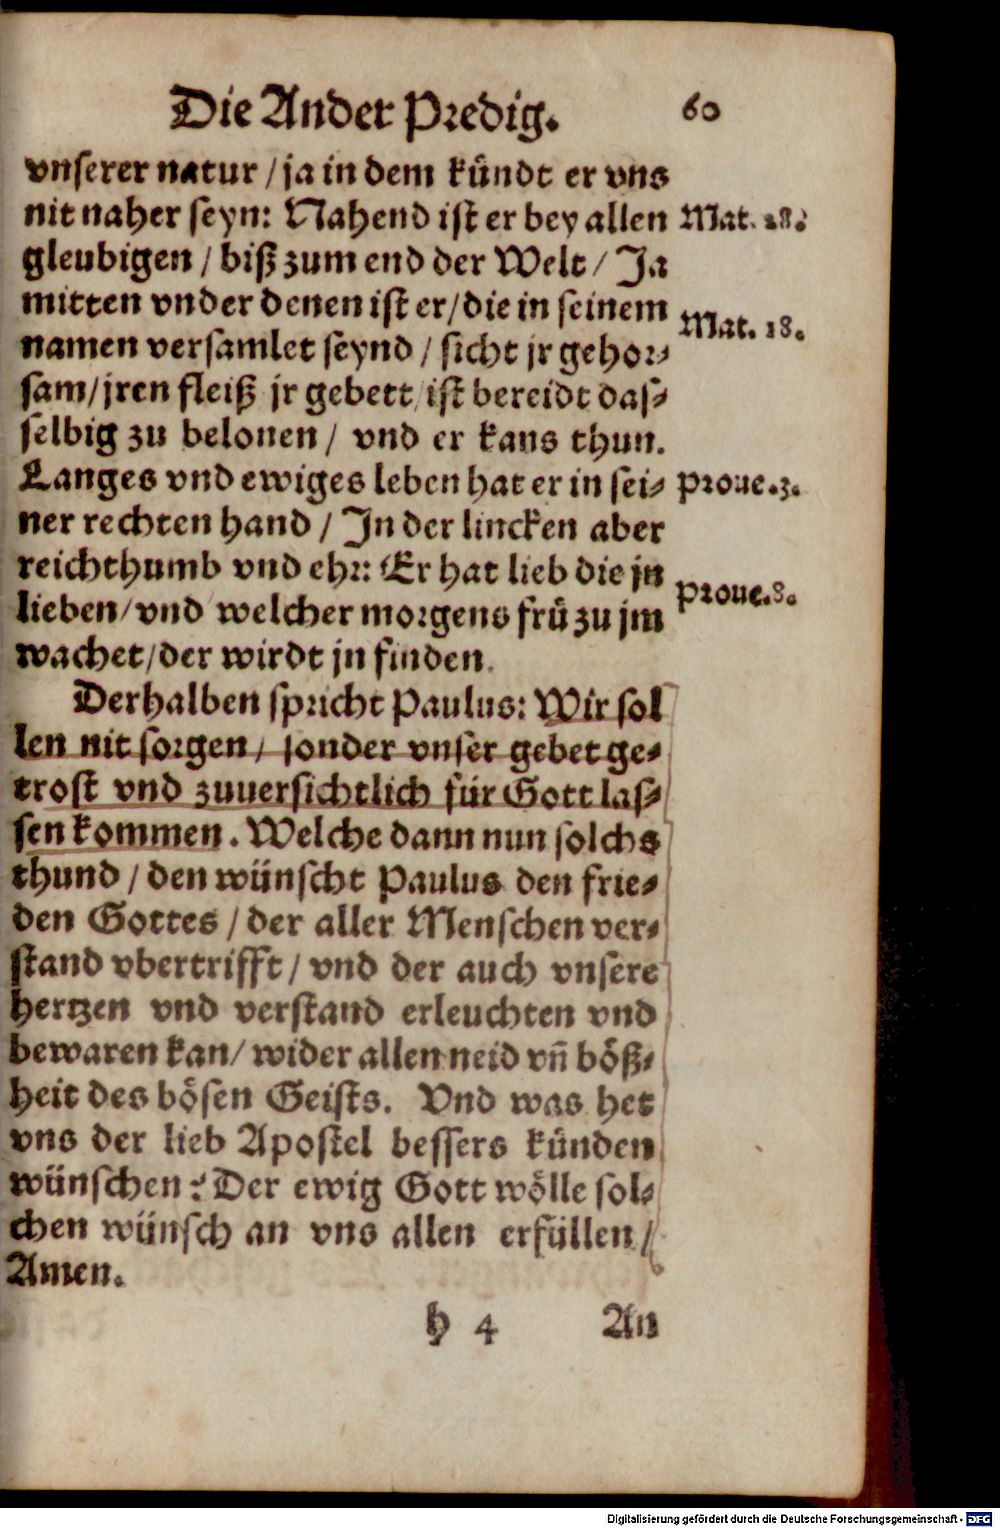 Die Ander Predig. 60
vnserer natur / ja in dem kündt er vns
nit naher seyn: Nahend ist er bey allen Mat. 28.
gleubigen / biß zum end der Welt / Ja
mitten vnder denen ist er / die in seinem
namen versamlet seynd / sicht jr gehor- Mat. 18.
sam / jren fleiß jr gebett / ist bereidt das-
selbig zu belonen / vnd er kans thun.
Langes vnd ewiges leben hat er in sei- Proue. 3.
ner rechten hand / In der lincken aber
reichthumb vnd ehr: Er hat lieb die jn
lieben / vnd welcher morgens frü zu jm Proue. 8.
wachet / der wirdt jn finden.
Derhalben spricht Paulus: Wir sol
len nit sorgen / sonder vnser gebet ge-
trost vnd zuuersichtlich für Gott las-
sen kommen. Welche dann nun solchs
thund / den wünscht Paulus den frie-
den Gottes / der aller Menschen ver-
stand vbertrifft / vnd der auch vnsere
hertzen vnd verstand erleuchten vnd
bewaren kan / wider allen neid vñ böß-
heit des bösen Geists. Vnd was het
vns der lieb Apostel bessers künden
wünschen? Der ewig Gott wölle sol-
chen wünsch an vns allen erfüllen /
Amen.
h 4 An
Digitalisierung gefördert durch die Deutsche Forschungsgemeinschaft - DFG